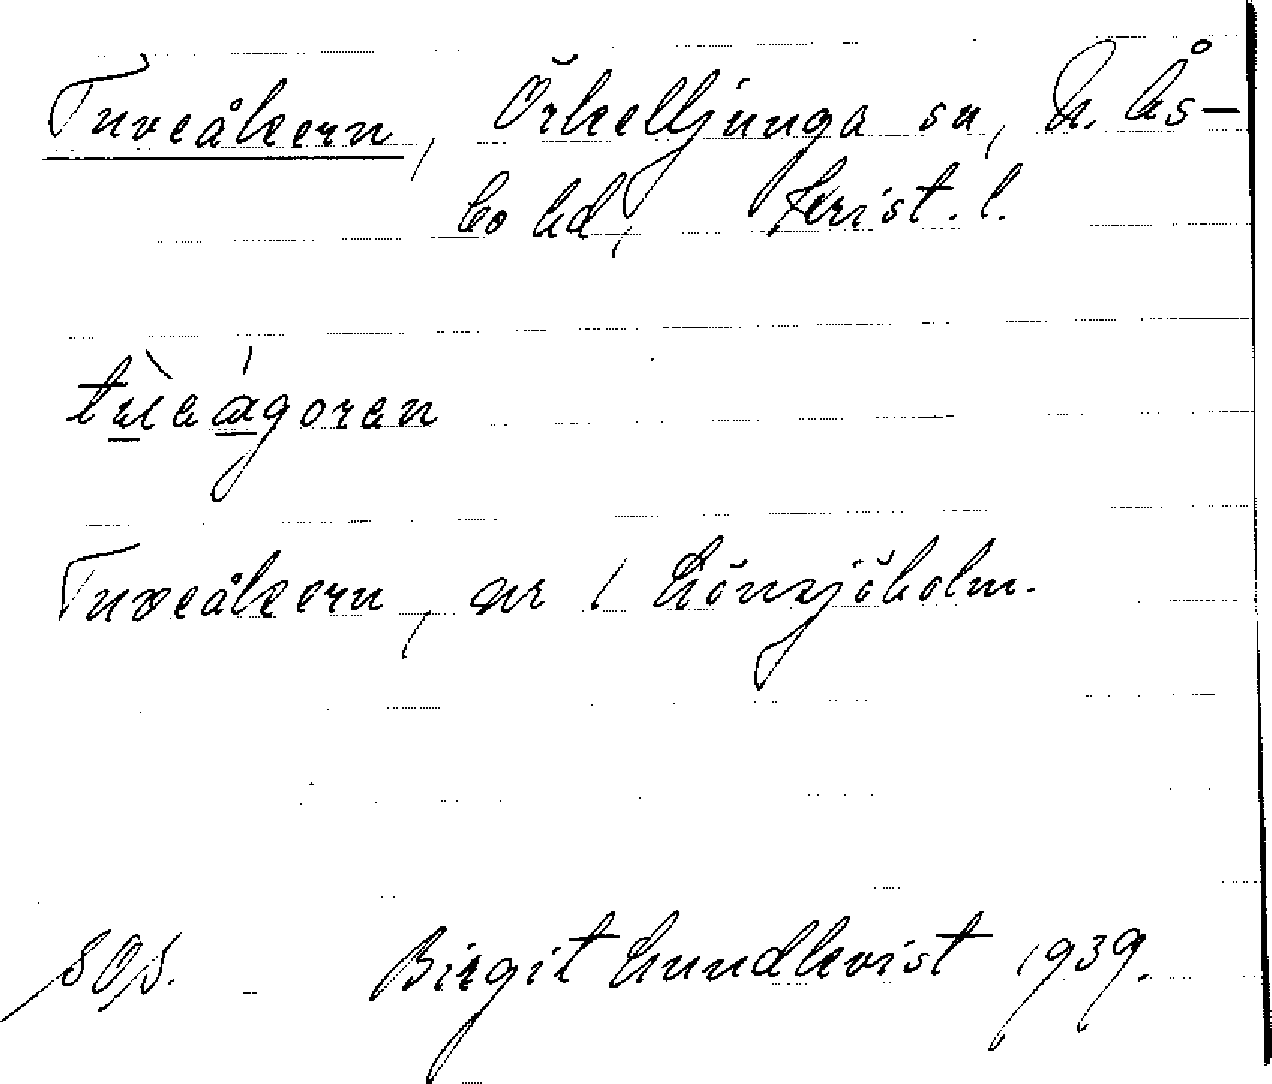 Tuveåkern, Örkelljunga sn, N. Ås-
bo hd, Krist. l.
tùeágoren
Tuveåkern, nr 1 Lönsjöholm.
Birgit Lundkvist 1939.